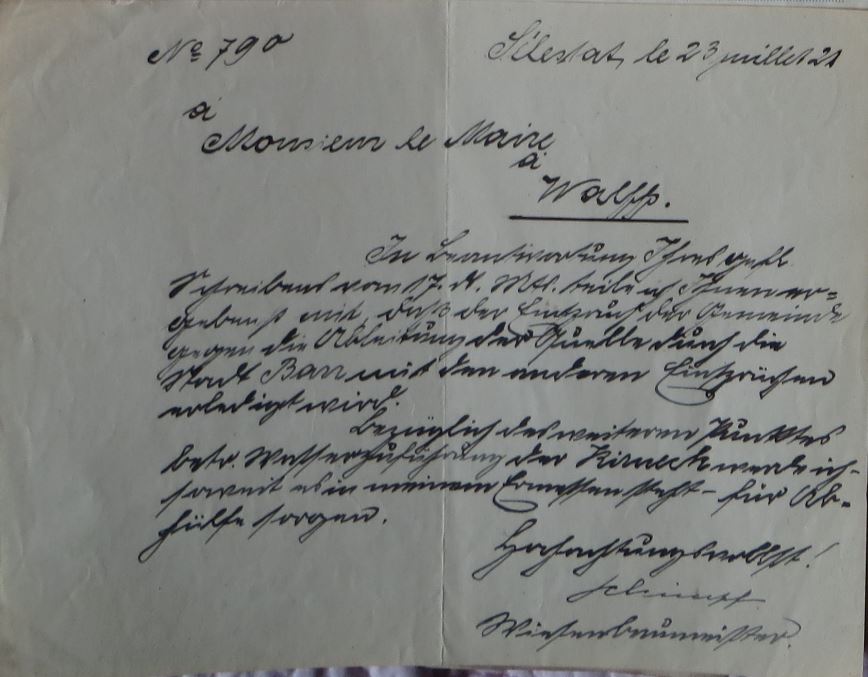 No 790
Sélestat, le 23 juillet 21
à
Monsieur le Maire
à
Walff.
In Beantwortung Ihres gefl.
Schreibens vom 17. d. Mts. teile ich Ihnen er=
gebenst mit, daß der Einspruch der Gemeinde
gegen die Ableitung der Quelle durch die
Stadt Barr mit den anderen Einsprüchen
erledigt wird.
Bezüglich des weiteren Punktes
betr. Wasserzuführung der Kirneck werde ich -
soweit es in meinem Ermessen steht - für Ab=
hülfe sorgen.
Hochachtungsvollst!
Wiesenbaumeister.